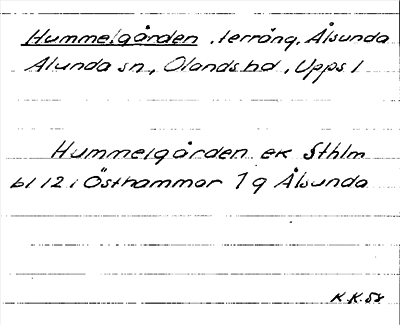 Hummelgården, terräng, Ålsunda
Alunda sn, Olands hd, Upps l
Hummelgården ek Sthlm
bl 12 i Östhammar 7 g Ålsunda
K.K. 58